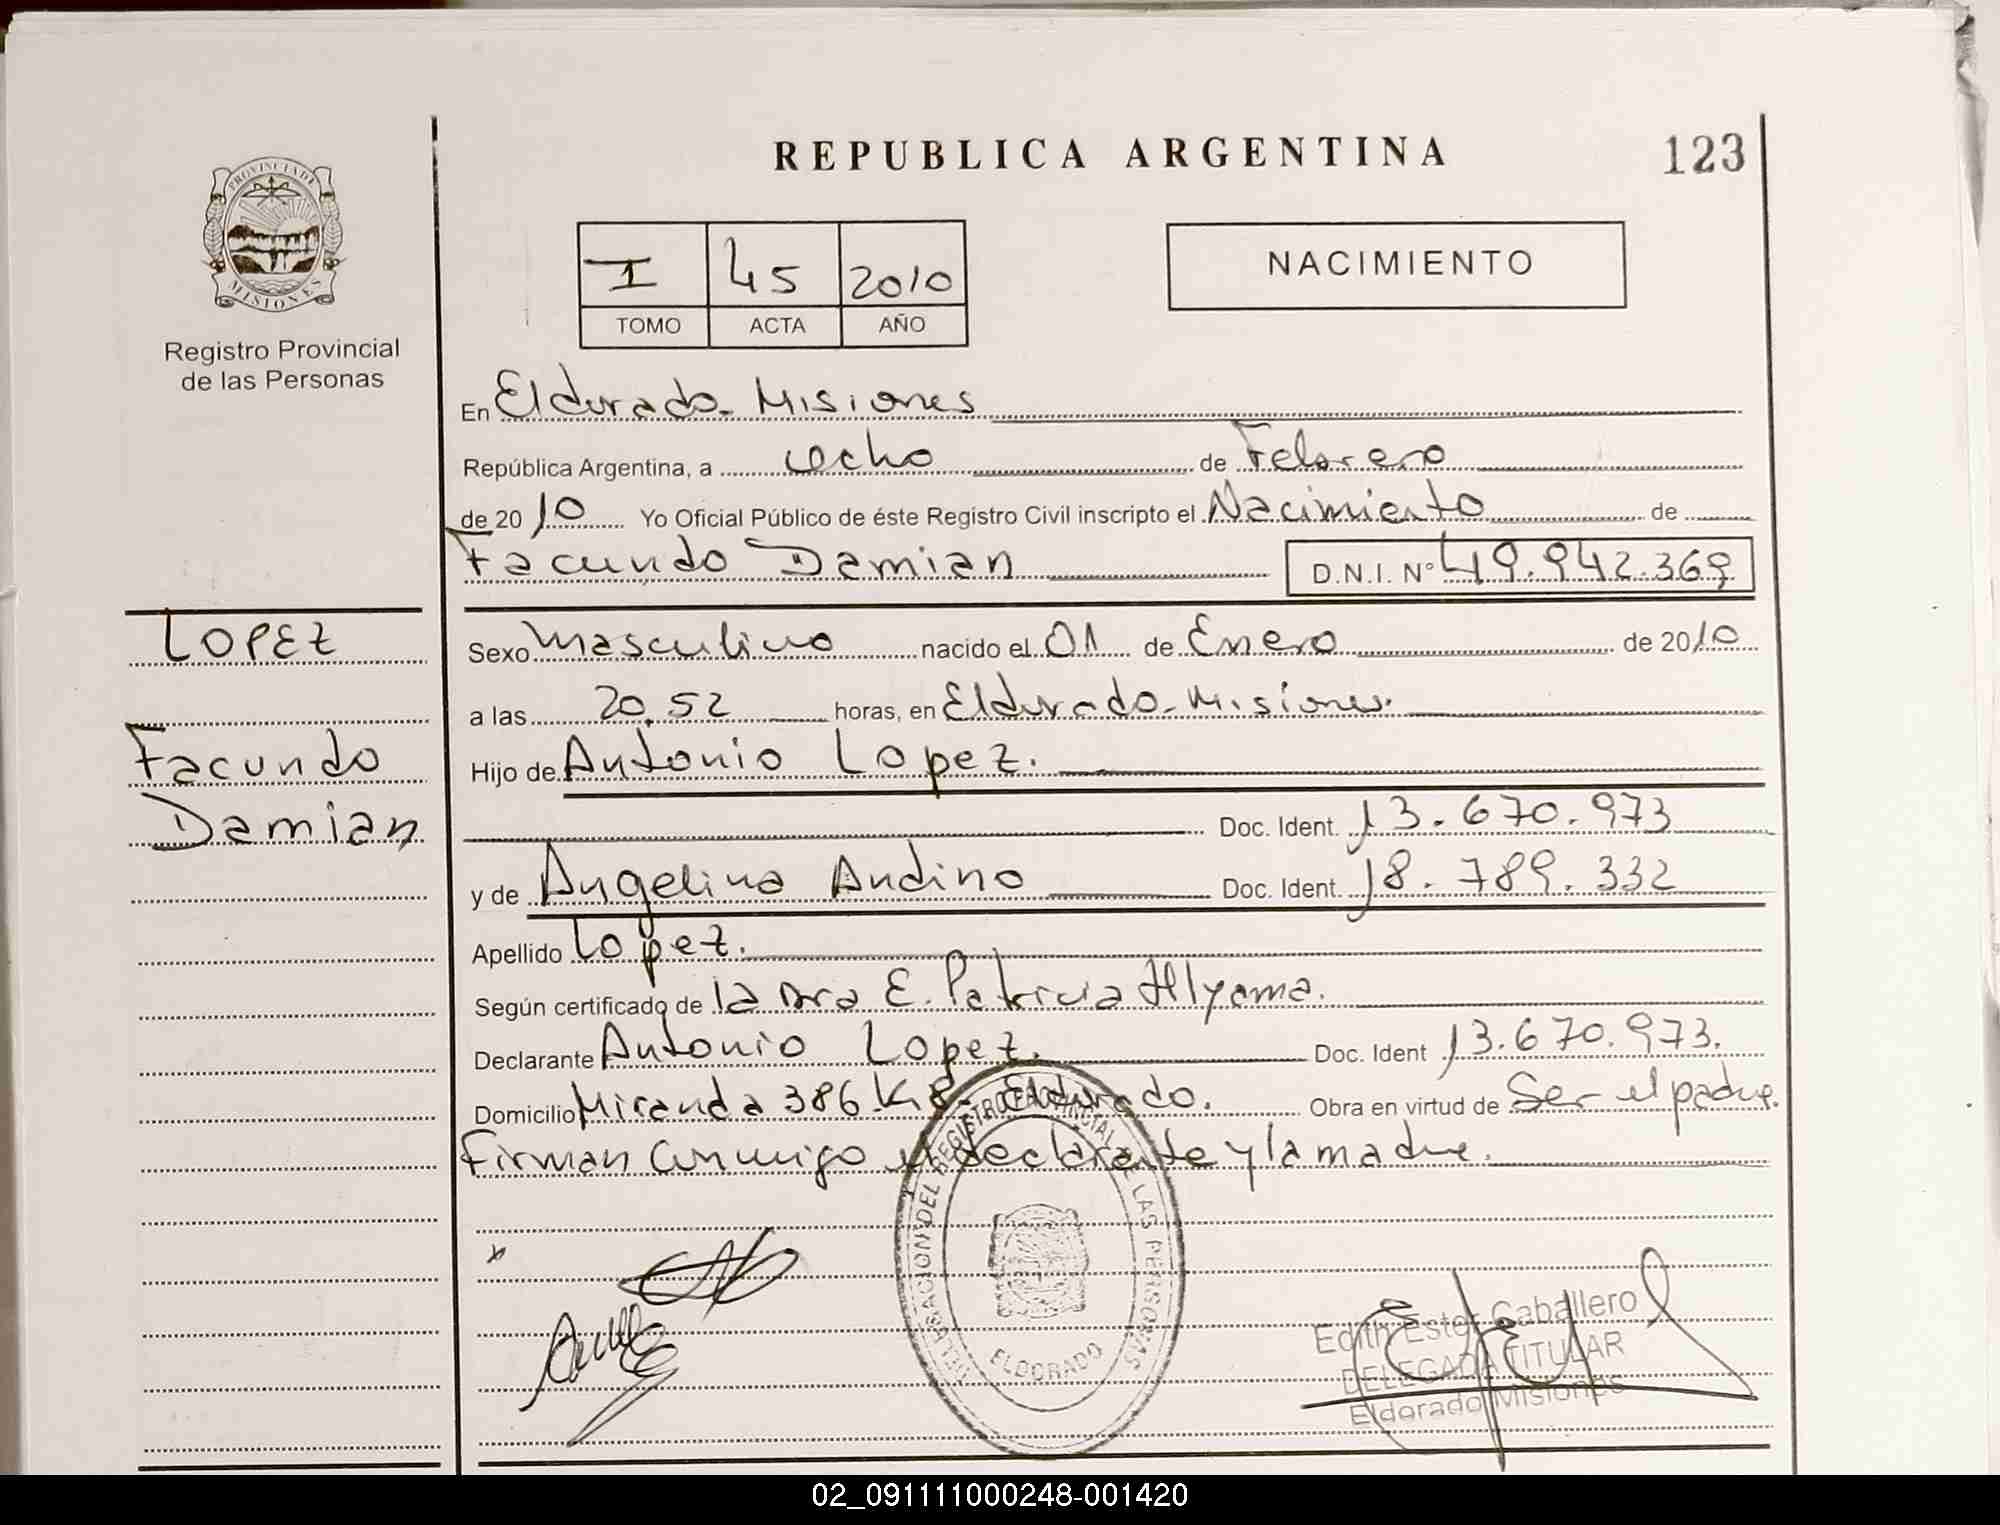 REPUBLICA ARGENTINA
123
PROVINCIA DE
MISIONES
Registro Provincial
de las Personas
I 45 2010
TOMO ACTA AÑO
NACIMIENTO
En Eldorado - Misiones
República Argentina, a ocho de Febrero
de 2010 Yo Oficial Público de éste Registro Civil inscripto el Nacimiento de
Facundo Damian D.N.I. Nº 49.942.369
LOPEZ
Facundo
Damian
Sexo Masculino nacido el 01 de Enero de 2010
a las 20,52 horas, en Eldorado - Misiones.
Hijo de Antonio Lopez.
Doc. Ident. 13.670.973
y de Angelina Andino Doc. Ident. 18.789.332
Apellido Lopez.
Según certificado de la Dra E. Patricia
Declarante Antonio Lopez. Doc. Ident 13.670.973.
Domicilio Miranda 386 K 8 - Eldorado. Obra en virtud de Ser el padre.
Firman conmigo el declarante y la madre.
DEL REGISTRO PROVINCIAL DE LAS PERSONAS
ELDORADO
Edith Ester Caballero
DELEGADA TITULAR
Eldorado Misiones
02_091111000248-001420